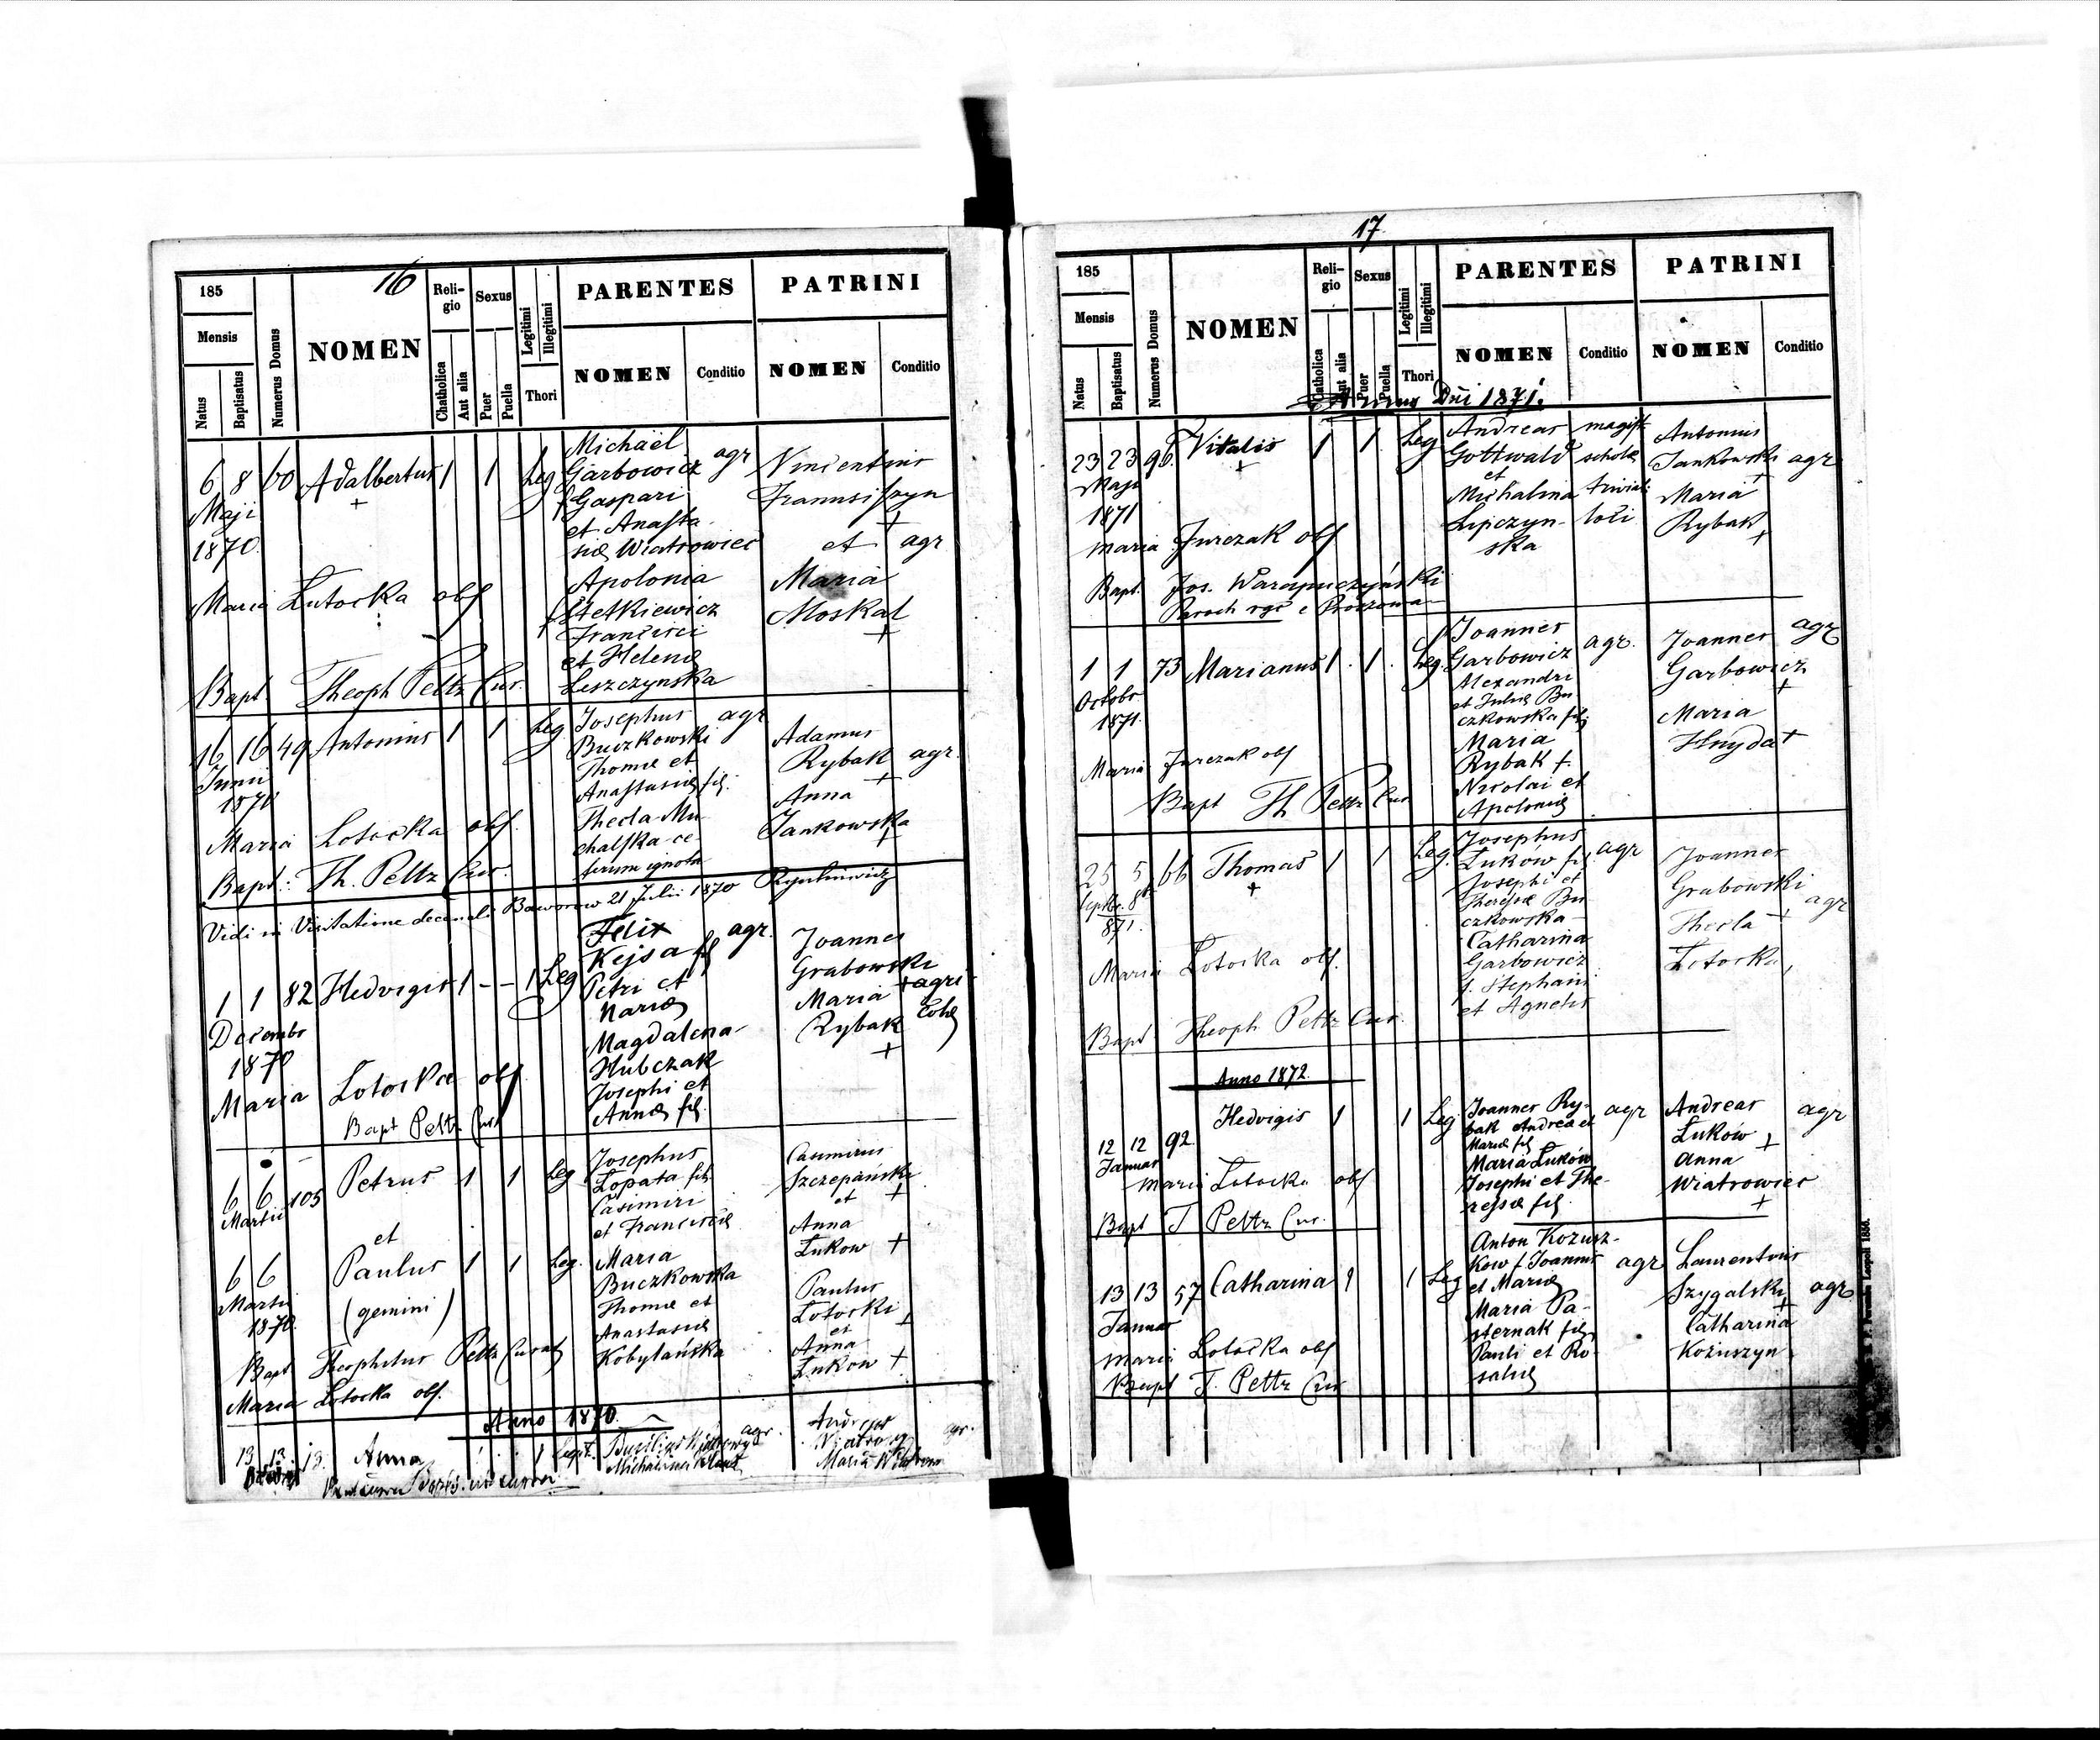 16
185
Mensis
Natus
Baptisatus
Numerus Domus
NOMEN
Religio
Chatholica
Aut alia
Sexus
Puer
Puella
Legitimi
Illegitimi
Thori
PARENTES
NOMEN
Conditio
PATRINI
NOMEN
Conditio
6 8 60 Adalbertus 1 1 Leg
Maji
1870.
Michaël
Garbowicz agr
f Gaspari
et Anasta-
siæ Wiatrowiec
Apolonia
Stetkiewicz
f Francisci
et Helenæ
Leszczynska
Vincentius
et agr
Maria
Moskal
Maria Lutocka obs
Bapt Theoph Peltz Cur.
16 16 49 Antonius 1 1 Leg
Junii
1870
Josephus agr
Buczkowski
Thomæ et
Anastasiæ fil.
Thecla Mu
chalska ce
terum ignota
Adamus
Rybak agr.
Anna
Jankowska
Maria Lotocka obs.
Bapt: Th. Peltz Cur.
Vidi in Visitatione decanali Baworow 21 Julii 1870
1 1 82 Hedvigis 1 - - 1 Leg
Decembr
1870
Felix agr.
Kejsa fil
Petri et
Mariæ
Magdalena
Hubczak
Josephi et
Annæ fil.
Joannes
Grabowski
Maria agri
Rybak colæ
Maria Lotocka obs
Bapt Peltz Cur
6 6 105 Petrus 1 1 Leg
Martii
et
6 6 Paulus 1 1 Leg.
Martii
1870. (gemini)
Josephus
Lopata fil.
Casimiri
et Franciscæ
Maria
Buczkowska
Thomæ et
Anastasiæ
Kobylańska
Casimirus
Szczepański
et
Anna
Lukow
Paulus
Lotocki
et
Anna
Lukow
Bapt Theophilus Peltz Curat
Maria Lotocka obs.
Anno 1870.
13 13 13. Anna 1 Legit. agr.
Michalina
Andreas
Maria
agr.
17
185
Mensis
Natus
Baptisatus
Numerus Domus
NOMEN
Religio
Catholica
Aut alia
Sexus
Puer
Puella
Legitimi
Illegitimi
Thori
PARENTES
NOMEN
Conditio
PATRINI
NOMEN
Conditio
Anno Dni 1871.
23 23 96. Vitalis 1 1 Leg
Maji
1871
Andreas magist
Gottwald scholæ
et
Michalina trivial:
Lipczyn- loci
ska
Antonius
Jankowski agr
Maria
Rybak
Maria Jurczak obs
Bapt. Jos.
Paroch
1 1 73 Marianus 1 1. Leg.
Octobr
1871.
Joannes
Garbowicz agr.
Alexandri
et Juliæ Bu
czkowska fil
Maria
Rybak f.
Nicolai et
Apoloniæ
Joannes agr
Garbowicz
Maria
Hnydat
Maria Jurczak obs
Bapt Th Peltz Cur
25 5 66 Thomas 1 1 Leg.
Septbr. 8br
871.
Josephus
Luków fil agr
Josephi et
Theresæ Bu
czkowska
Catharina
Garbowicz
f. Stephani
et Agnetis
Joannes
Grabowski
Thecla agr
Lotocka
Maria Lotocka obs.
Bapt Theoph Peltz Cur.
Anno 1872.
12 12 92 Hedvigis 1 1 Leg
Januar
Joannes Ry-
bak Andreæ et agr
Mariæ fil
Maria Luków
Josephi et The-
resæ fil
Andreas agr
Luków
Anna
Wiatrowiec
Maria Lotocka obs
Bapt T Peltz Cur.
13 13 57 Catharina 1 1 Leg
Januar
Anton Kożusz-
kow f Joannis agr
et Mariæ
Maria Pa-
sternak fil
Pauli et Ro-
saliæ
Laurentius
Szygalski agr
Catharina
Kożuszyn
Maria Lotocka obs
Bapt T. Peltz Cur